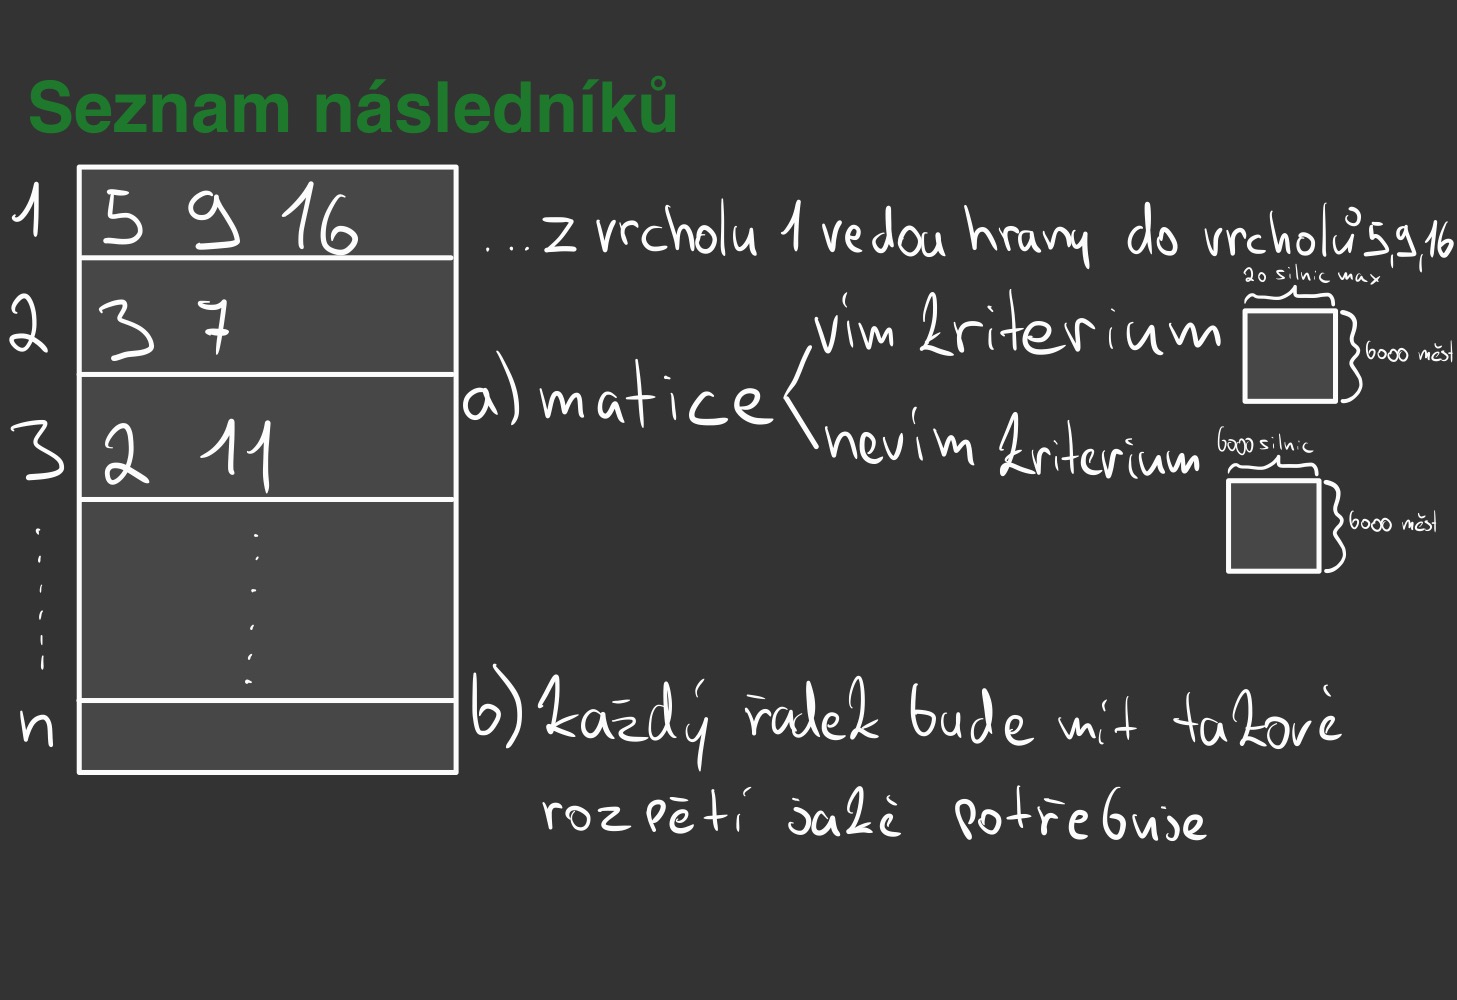 Seznam následníků
1 5 9 16 ...z vrcholu 1 vedou hrany do vrcholů 5,9,16
2 3 7
3 2 11
n
a) matice
vím kriterium
20 silnic max
6000 měst
nevím kriterium
6000 silnic
6000 měst
b) každý řádek bude mít takové
rozpětí jaké potřebuje